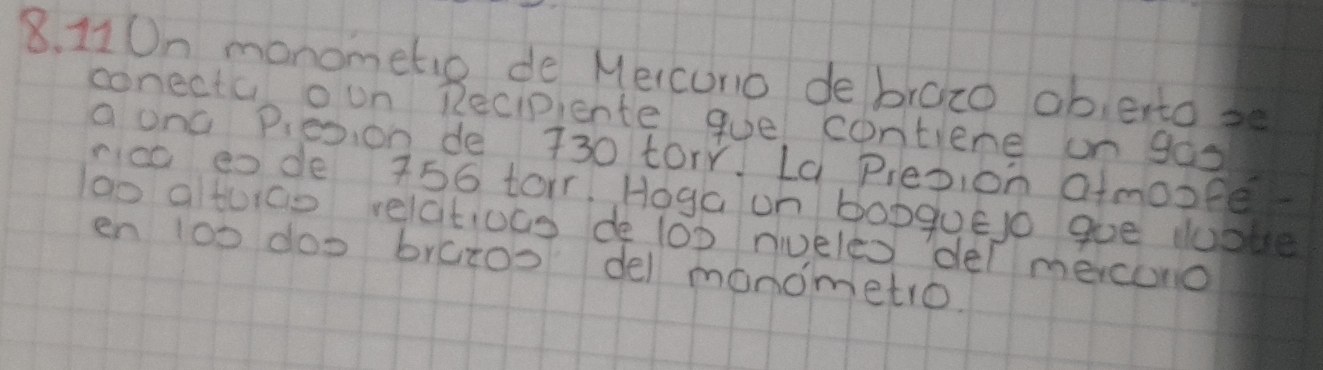 8.11 Un manómetro de Mercurio de brazo abierto se
conecta a un Recipiente que contiene un gas
a una Presion de 730 torr. La Presión atmosfé-
rica es de 756 torr. Haga un bosquejo que ilustre
las alturas relativas de los niveles del mercurio
en los dos brazos del manómetro.